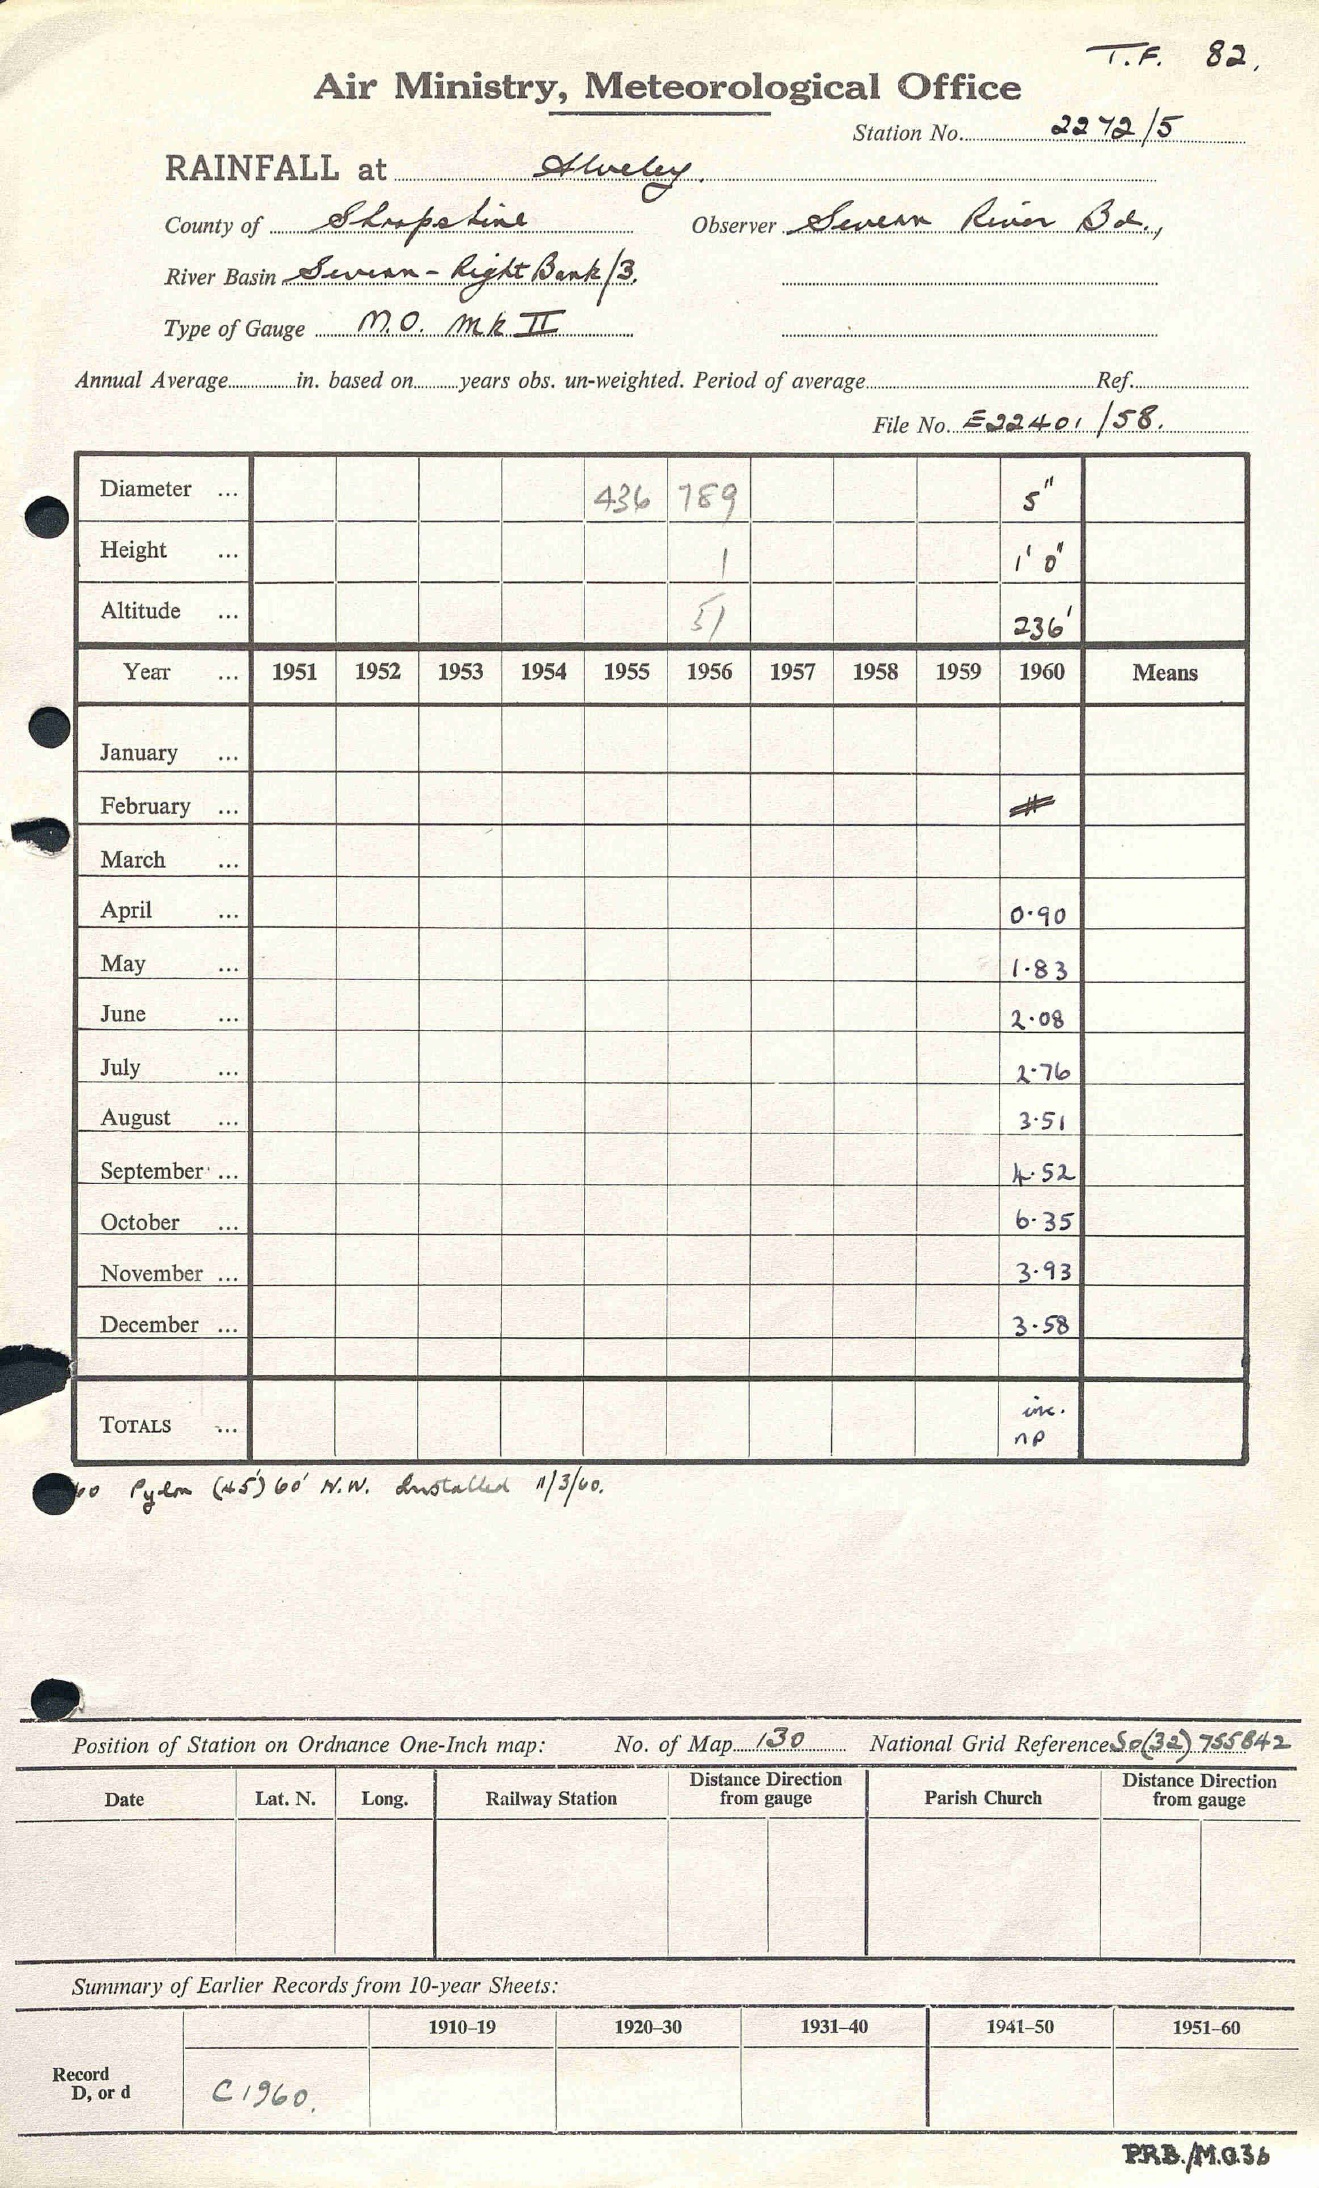 T.F. 82.
Air Ministry, Meteorological Office
Station No. 2272/5
RAINFALL at Alveley.
County of Shropshire Observer Severn River Bd.,
River Basin Severn - Right Bank/3.
Type of Gauge M.O. Mk II
Annual Average in. based on years obs. un-weighted. Period of average Ref.
File No. E22401/58.
Diameter ... 436 789 5"
Height ... 1 1' 0"
Altitude ... 51 236'
Year ... 1951 1952 1953 1954 1955 1956 1957 1958 1959 1960 Means
January ...
February ...
March ...
April ... 0.90
May ... 1.83
June ... 2.08
July ... 2.76
August ... 3.51
September ... 4.52
October ... 6.35
November ... 3.93
December ... 3.58
TOTALS ... inc.
np
60 Pylon (45') 60' N.W. Installed 11/3/60.
Position of Station on Ordnance One-Inch map: No. of Map 130 National Grid Reference SO(32) 755842
Date Lat. N. Long. Railway Station Distance Direction from gauge Parish Church Distance Direction from gauge
Summary of Earlier Records from 10-year Sheets:
1910–19 1920–30 1931–40 1941–50 1951–60
Record
D, or d C1960.
P.R.B./M.O.36